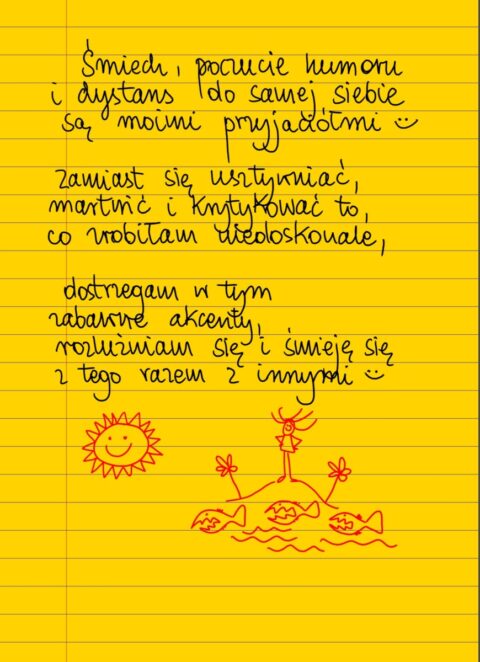 Śmiech, poczucie humoru
i dystans do samej siebie
są moimi przyjaciółmi :)
Zamiast się usztywniać,
martwić i krytykować to,
co zrobiłam niedoskonale,
dostrzegam w tym
zabawne akcenty,
rozluźniam się i śmieję się
z tego razem z innymi :)